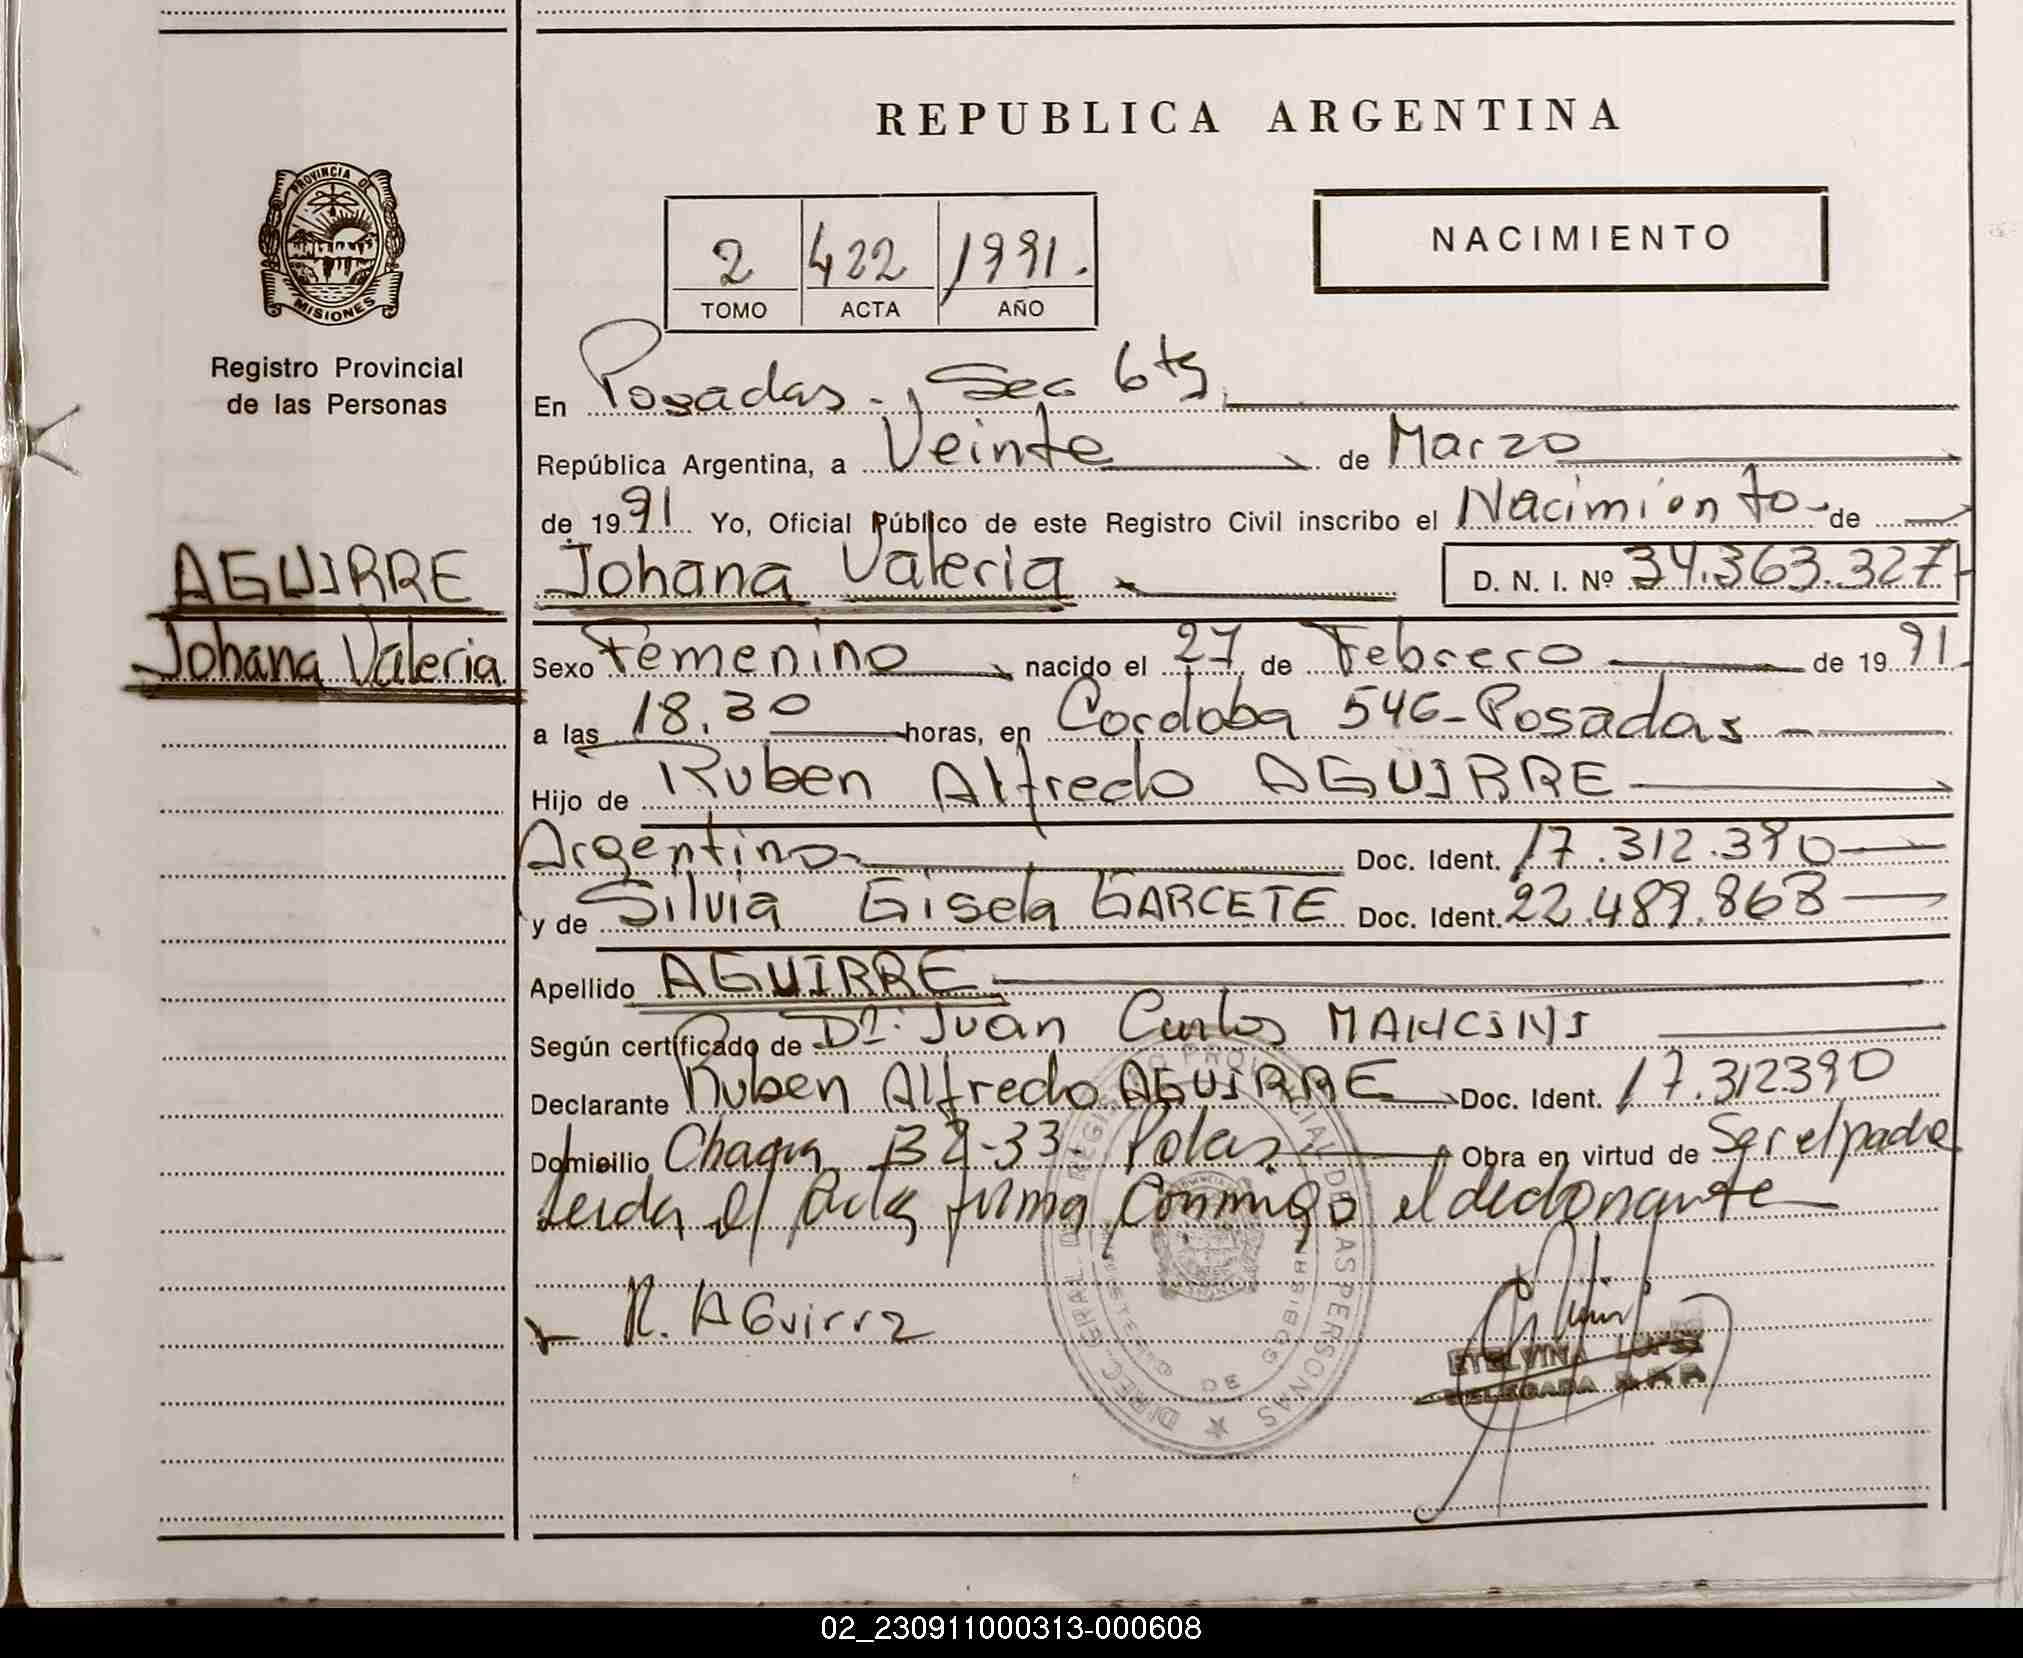 REPUBLICA ARGENTINA
PROVINCIA DE
MISIONES
Registro Provincial
de las Personas
NACIMIENTO
2 422 1991.
TOMO ACTA AÑO
En Posadas., Sec 6ta
República Argentina, a Veinte de Marzo
de 1991 Yo, Oficial Público de este Registro Civil inscribo el Nacimiento de
AGUIRRE
Johana Valeria
Johana Valeria D. N. I. Nº 34.363.327
Sexo Femenino nacido el 27 de Febrero de 1991
a las 18.30 horas, en Cordoba 546-Posadas
Hijo de Ruben Alfredo AGUIRRE
Argentino Doc. Ident. 17.312.390
y de Silvia Gisela GARCETE Doc. Ident. 22.489.868
Apellido AGUIRRE
Según certificado de Dr. Juan Carlos MANCINI
Declarante Ruben Alfredo AGUIRRE Doc. Ident. 17.312390
Domicilio Chacra 32-33- Pdas. Obra en virtud de Ser el padre
Leida el Acta firma conmigo el declarante
R. AGuirre
ETELVINA LOPEZ
DELEGADA
DIREC. GRAL. DE REGISTRO PROVINCIAL DE LAS PERSONAS
02_230911000313-000608